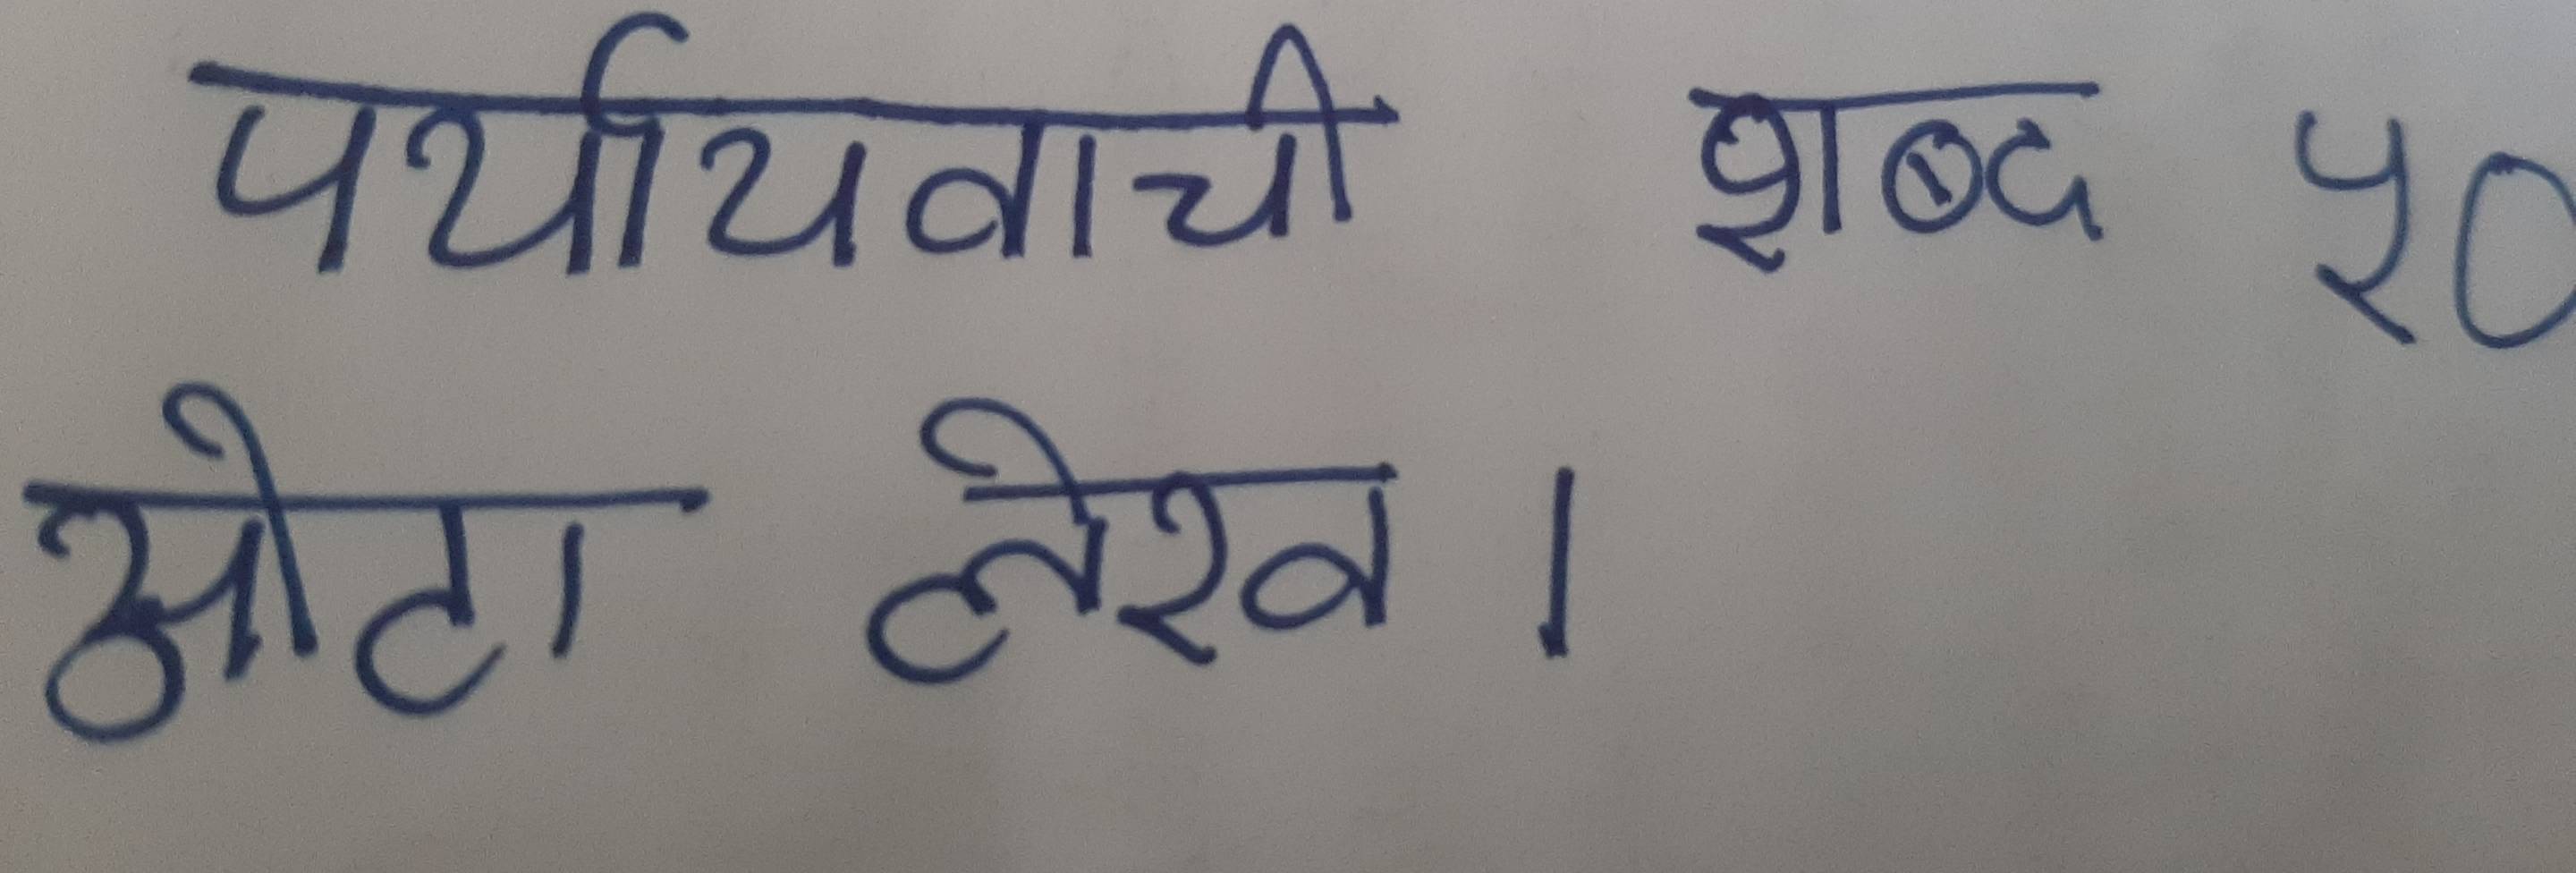 पर्यायवाची शब्द ५०
ओटा लेख ।